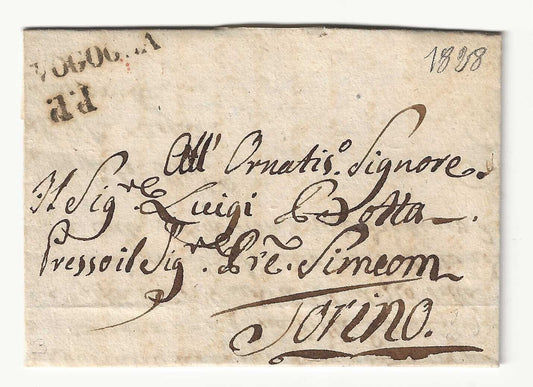 VOGOGNA
P.P.
1828
All' Ornatis.º Signore.
Il Sig.re Luigi Botta.
Presso il Sig.re Pre. Simeom
Torino.